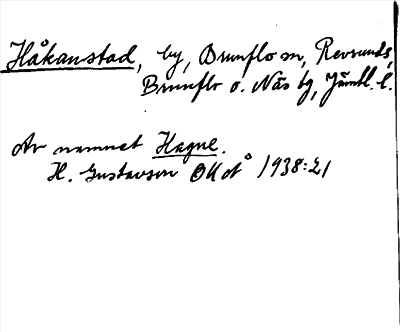 Håkanstad, by, Brunflo sn, Revsunds,
Brunflo o. Näs tg, Jämtl. l.
Av namnet Hagne.
H. Gustavson OKot° 1938:21